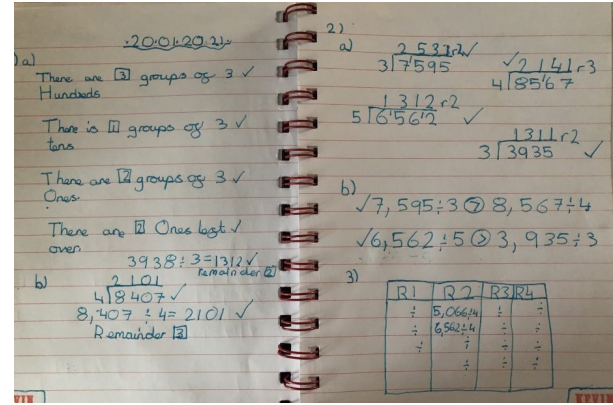 20.01.2021
1)a)
There are 3 groups of 3 ✓
Hundreds
There is 1 groups of 3 ✓
tens
There are 2 groups of 3 ✓
Ones.
There are 2 Ones left ✓
over.
3938÷3=1312✓
remainder 2
b) 2101
4 8407 ✓
8,407 ÷ 4= 2101 ✓
Remainder 3
2)
a) 2 5 3 1 r2 ✓
3 7595
✓ 2141 r3
4 8567
1312 r2
5 6562 ✓
1311 r2
3 3935 ✓
b)
✓7,595÷3 > 8,567÷4
✓6,562÷5 > 3,935÷3
3)
R1 R2 R3 R4
÷ 5,066÷4 ÷ ÷
÷ 6,562÷4 ÷ ÷
÷ ÷ ÷ ÷
÷ ÷ ÷